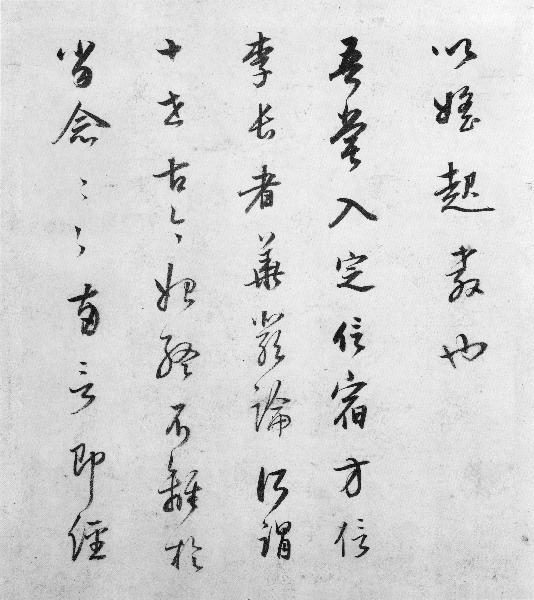 以婬起教也
吾嘗入定信宿方信
李長者華嚴論所謂
十世古今始終不離於
當念〻〻兩言即經